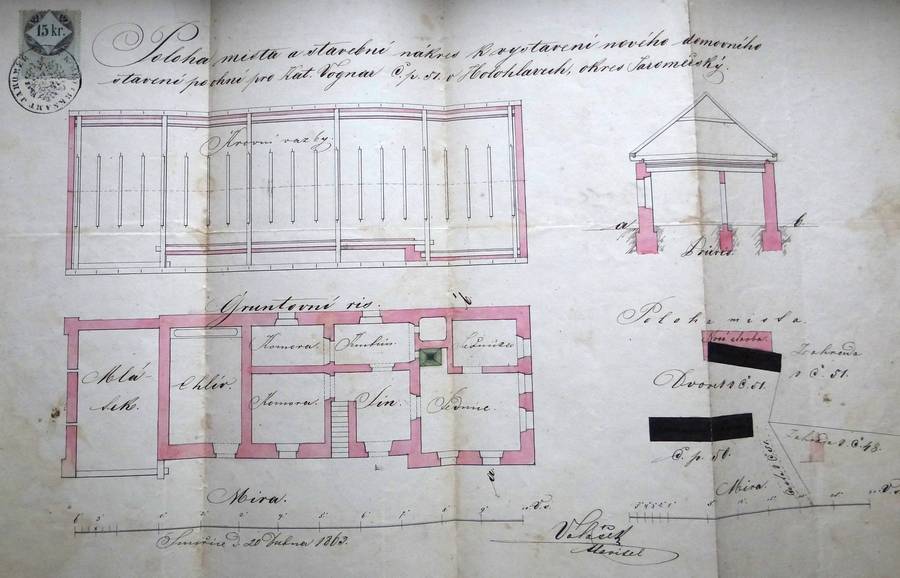 15 kr.
Poloha místa a stavební nákres k vystavení nového domovního
stavení p. chné pro Kat. Vognar Č. p. 51. v Holohlavech, okres Jaroměřský.
Krovní vazby.
a b.
Průřez.
Gruntovní ris.
b
Komora.
Kuchin
Mlá-
sek.
Chlív.
Komora.
Siň.
Sednice.
a
Poloha místa.
Nová stavba
Zahrada
z č. 51.
Dvor z č. 51.
Zahrada z č. 48.
č. p. 50.
Míra.
Míra.
Smiřice d. 20 Dubna 1863.